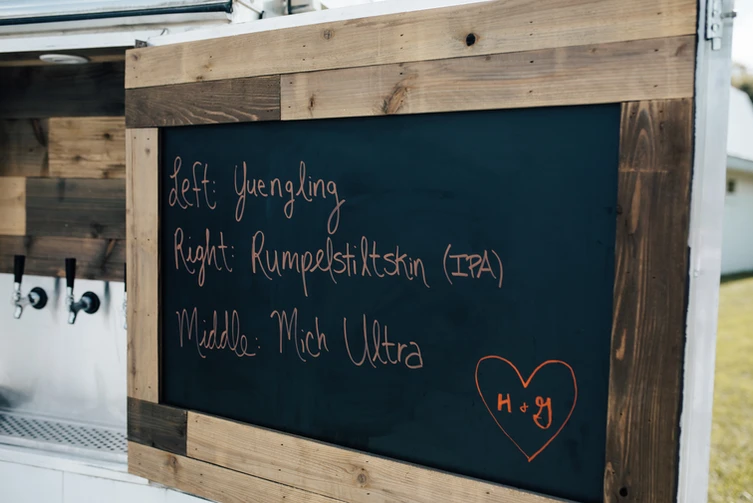 Left: Yuengling
Right: Rumpelstiltskin (IPA)
Middle: Mich Ultra
H + G